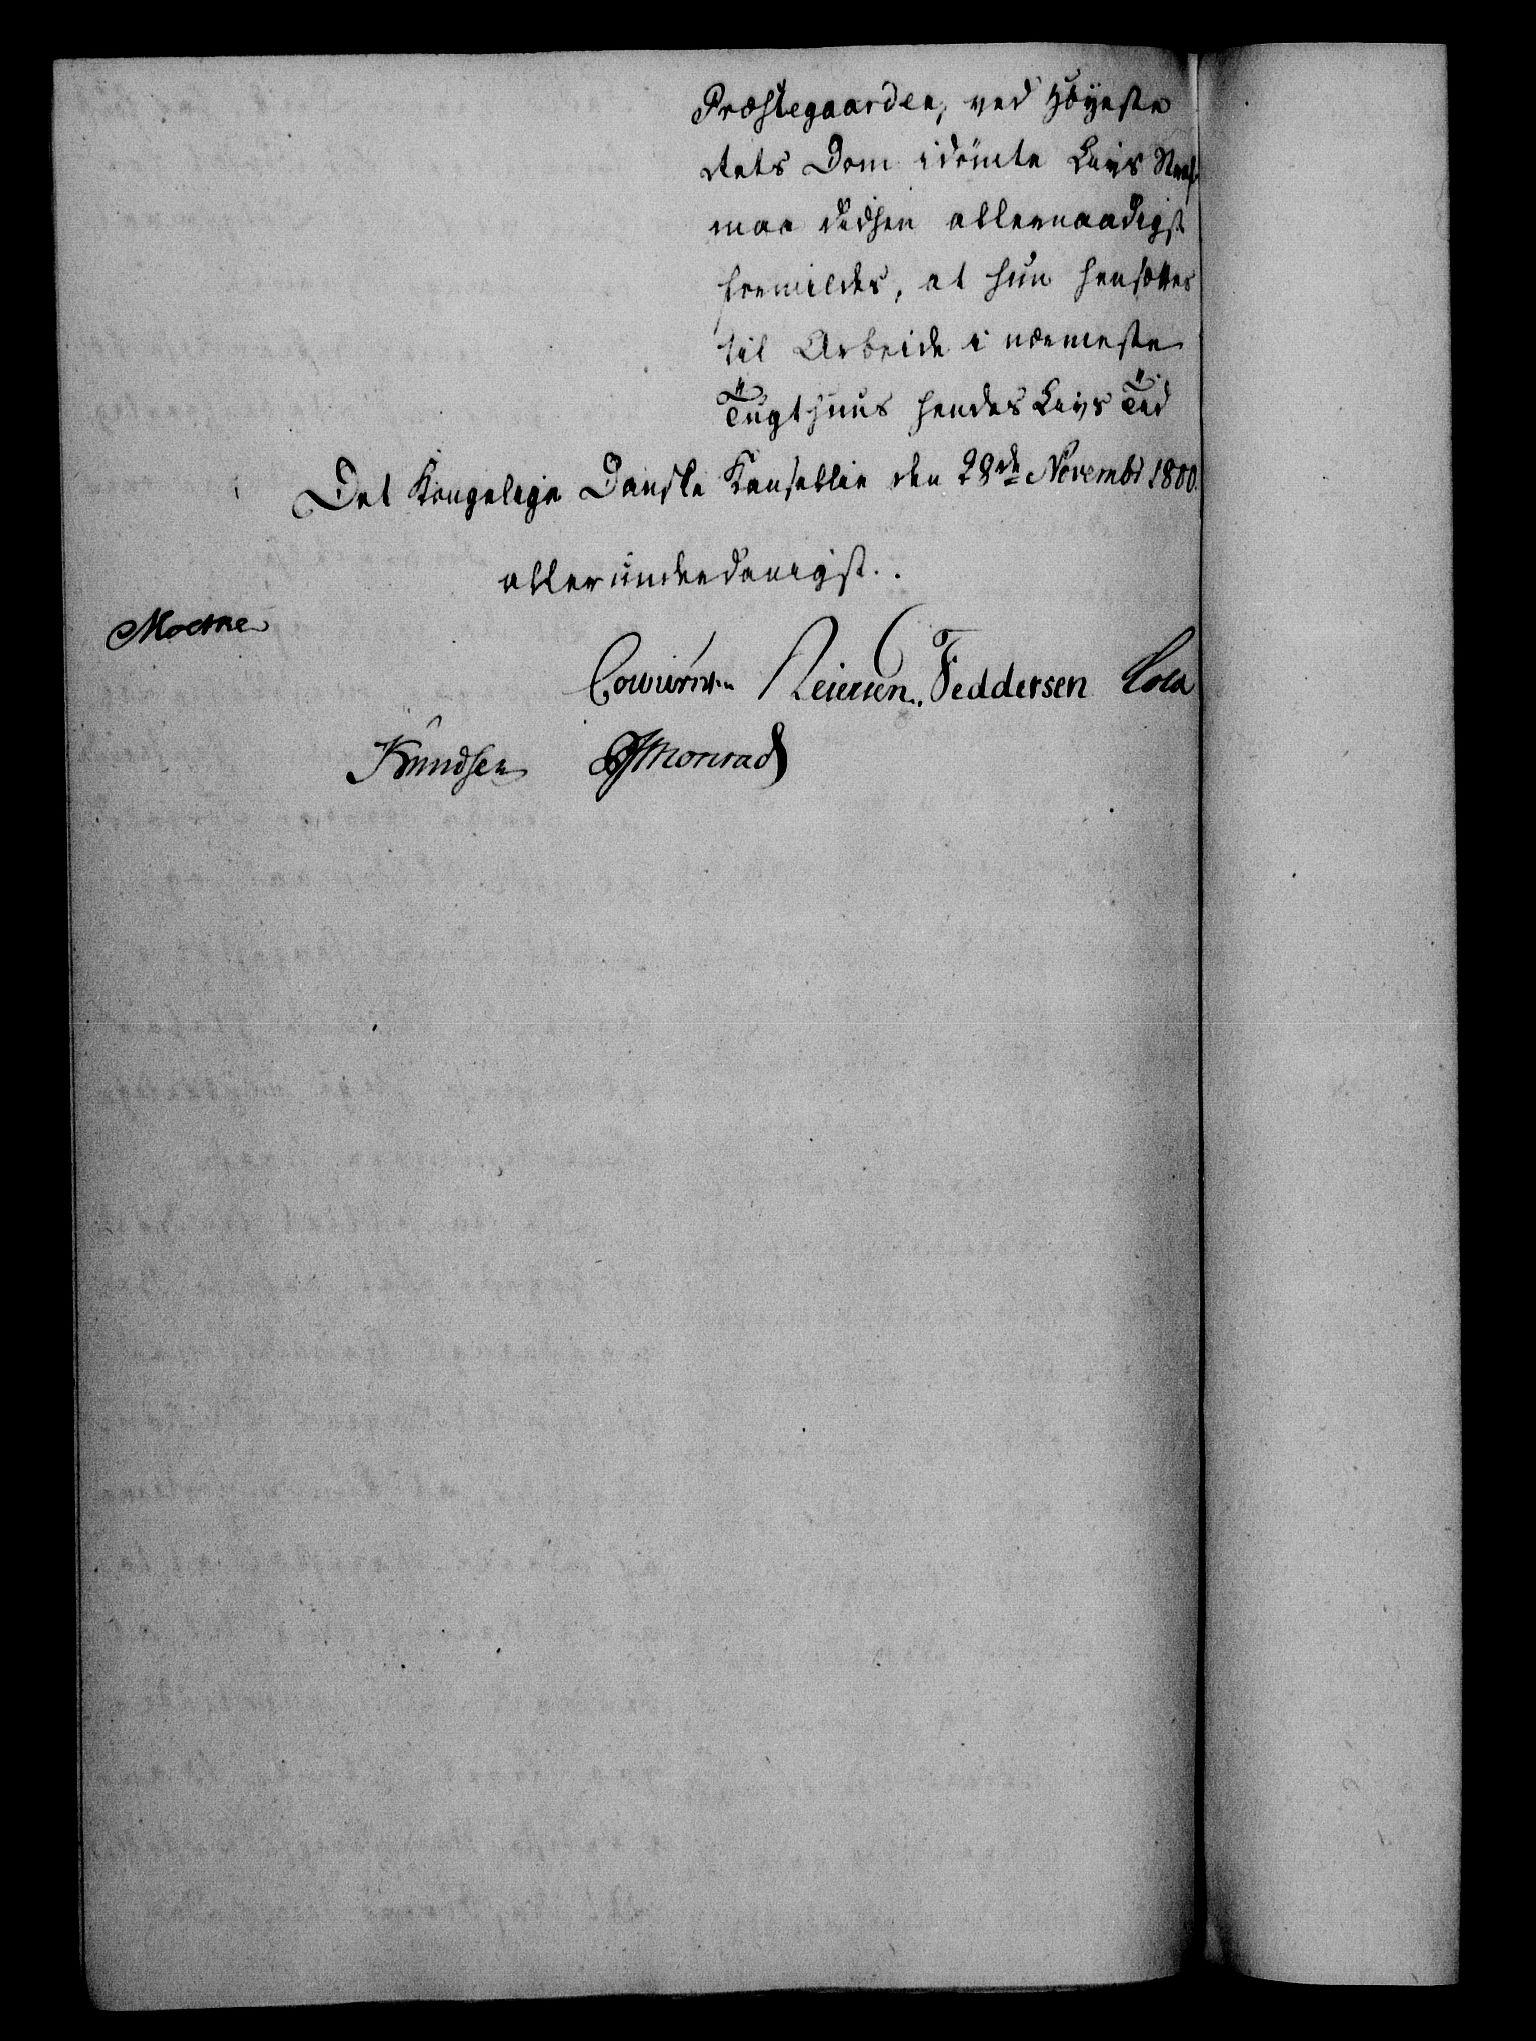 Præstegaarden, ved Høyeste
Retts Dom idömte Livs Straf
maa didhen allernaadigst
formildes, at hun hensættes
til Arbeide i nærmeste
Tugthuus hendes Livs Tid
Det Kongelige Danske Kancellie den 28de Novembr 1800.
allerunderdanigst.
Moetke
Reiersen. Feddersen Cold
Knudsen Monrad